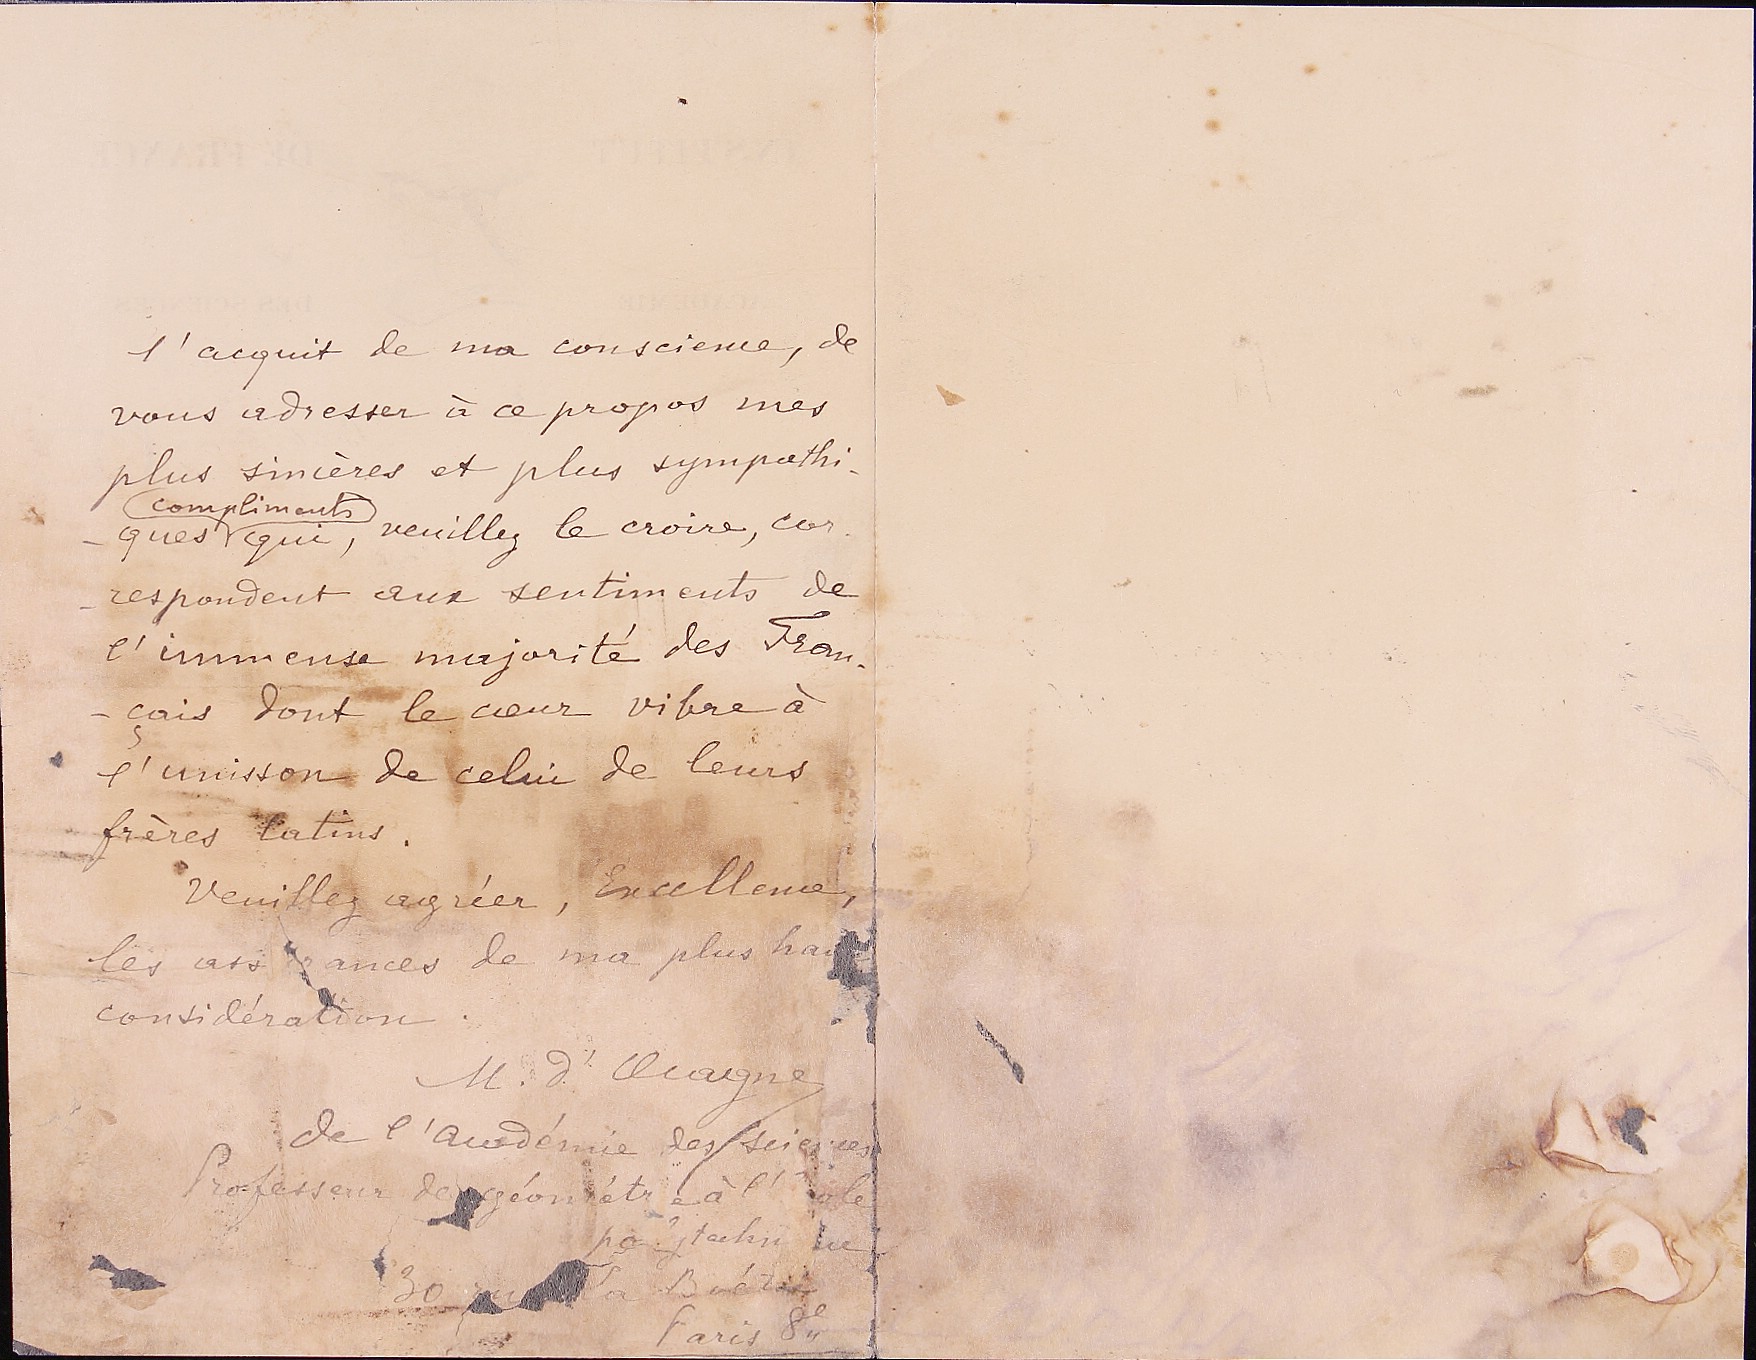 l'acquit de ma conscience, de
vous adresser à ce propos mes
plus sincères et plus sympathi-
compliments
-ques qui, veuillez le croire, cor-
-respondent aux sentiments de
l'immense majorité des Fran-
-çais dont le cœur vibre à
l'unisson de celui de leurs
frères latins.
Veuillez agréer, Excellence,
les ass ances de ma plus hau
considération.
M. d'Ocagne
de l'Académie des sciences
Professeur de géométr e à l' ole
po ytechni ue
30 rue la Boétie
Paris 8e